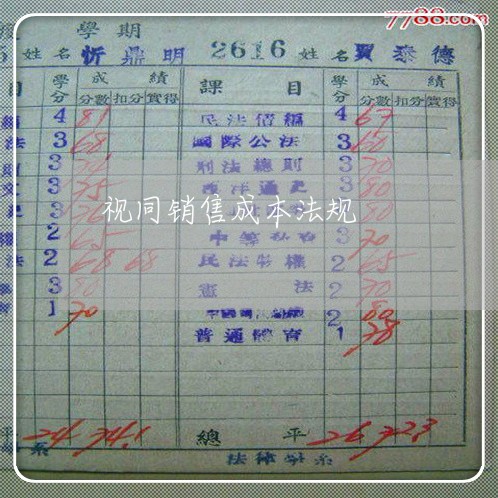 7788.com
學期
姓名 忻鼎明 2616 姓名 賈泰德
目 學分 成績 課目 學分 成績
分數 扣分 實得 分數 扣分 實得
4 81 民法債編 4 67
法 3 68 國際公法 3 60
3 刑法總則 3 70
3 75 3 80
3 3 80
視同銷售成本法規
2 65 3 70
法 2 68 68 民法物權 2 65
3 80 憲法 2 70
1 70 2 80
普通體育 1 78
平 24 74.1 總平 26 72.3
系 法律學系